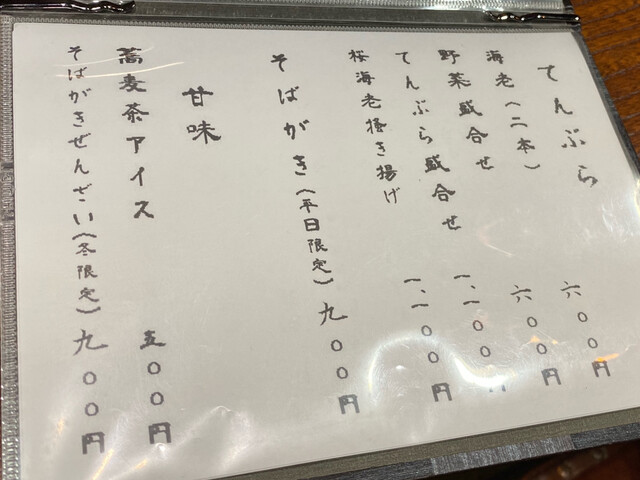 てんぷら
海老(二本) 六〇〇円
野菜盛合せ 六〇〇円
てんぷら盛合せ 一、一〇〇円
桜海老掻き揚げ 一、一〇〇円
そばがき(平日限定) 九〇〇円
甘味
蕎麦茶アイス 五〇〇円
そばがきぜんざい(冬限定) 九〇〇円